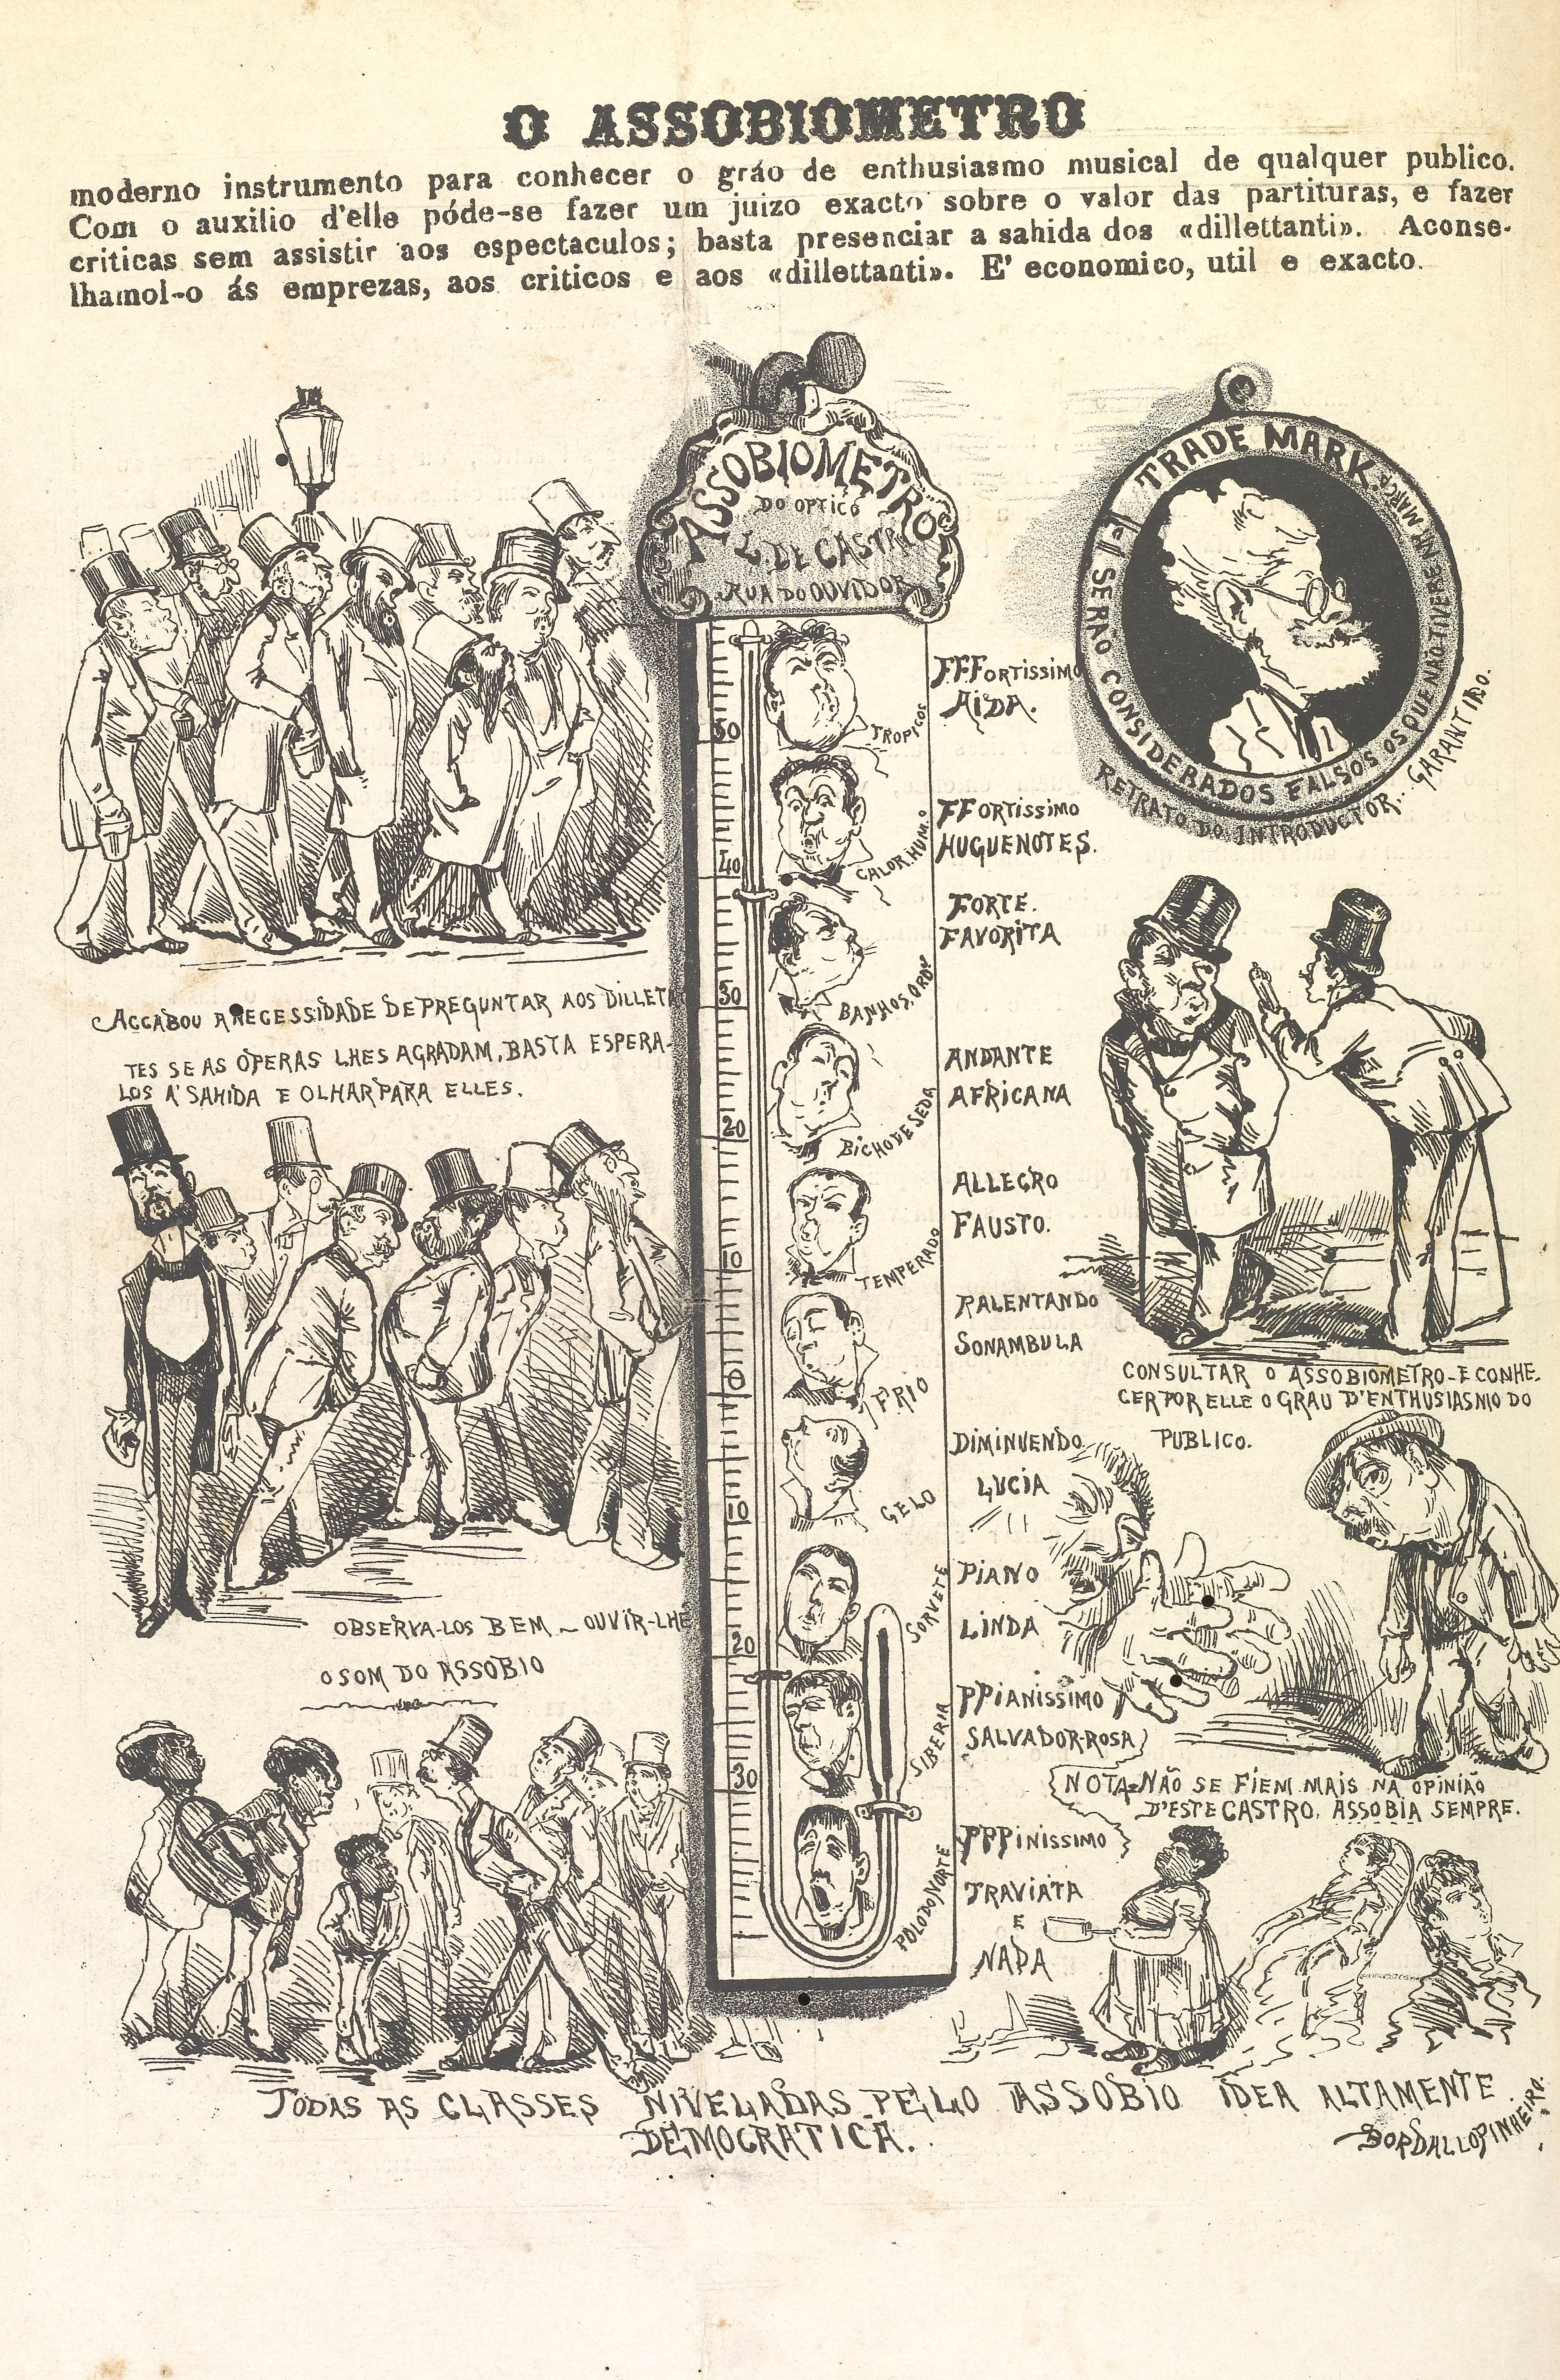 O ASSOBIOMETRO
moderno instrumento para conhecer o gráo de enthusiasmo musical de qualquer publico.
Com o auxilio d'elle póde-se fazer um juizo exacto sobre o valor das partituras, e fazer
criticas sem assistir aos espectaculos; basta presenciar a sahida dos «dillettanti». Aconse-
lhamol-o ás emprezas, aos criticos e aos «dillettanti». E' economico, util e exacto.
ASSOBIOMETRO
DO OPTICO
L. DE CASTRO
RUA DO OUVIDOR
TRADE MARK
SERÃO CONSIDERADOS FALSOS OS QUE NÃO TIVEREM A MARCA
RETRATO DO INTRODUCTOR. GARANTIDO.
50
TROPICOS
FFFORTISSIMO
AIDA.
40
CALOR HUM.O
FFORTISSIMO
HUGUENOTES.
FORTE.
FAVORITA
30
BANHOS. ORDN
ANDANTE
AFRICANA
20
BICHO DE SEDA
ALLEGRO
FAUSTO.
10
TEMPERADO
RALENTANDO
SONAMBULA
0
FRIO
DIMINUENDO
LUCIA
10
GELO
PIANO
LINDA
20
SORVETE
PPIANISSIMO
SALVADOR-ROSA
30
SIBERIA
PPPINISSIMO
TRAVIATA
E
NADA
POLO DO NORTE
ACCABOU A NECESSIDADE DE PREGUNTAR AOS DILLETA
TES SE AS OPERAS LHES AGRADAM, BASTA ESPERA-
LOS A' SAHIDA E OLHAR PARA ELLES.
OBSERVA-LOS BEM - OUVIR-LHE
O SOM DO ASSOBIO
CONSULTAR O ASSOBIOMETRO - E CONHE-
CER POR ELLE O GRAU D'ENTHUSIASMO DO
PUBLICO.
NOTA - NÃO SE FIEM MAIS NA OPINIÃO
D'ESTE CASTRO. ASSOBIA SEMPRE.
TODAS AS CLASSES NIVELADAS PELO ASSOBIO IDEA ALTAMENTE
DEMOCRATICA.
BORDALLO PINHEIRO.